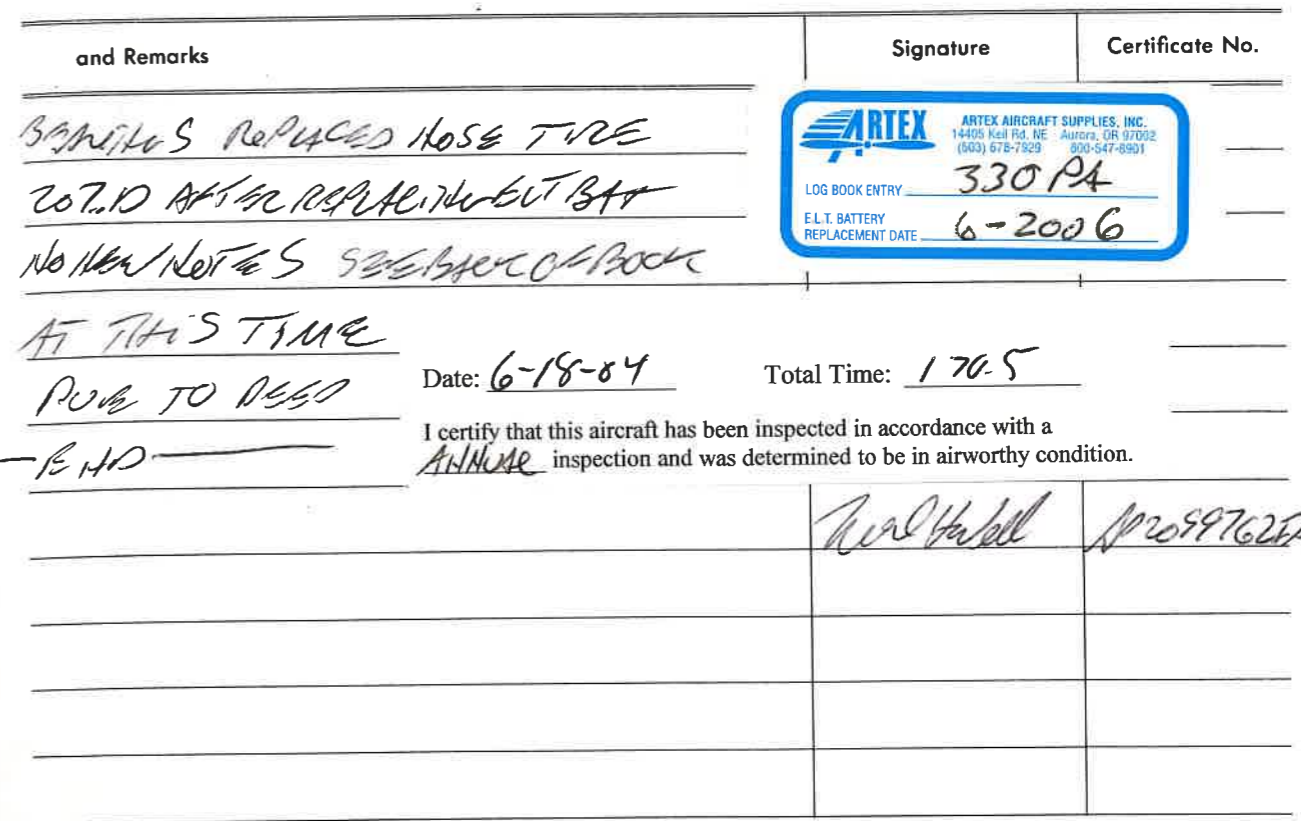 and Remarks Signature Certificate No.
BEARINGS REPLACED NOSE TIRE
207.D AFTER REPLACING ELT BAT
NO NEW NOTES SEE BACK OF BOOK
ARTEX
ARTEX AIRCRAFT SUPPLIES, INC.
14405 Keil Rd. NE Aurora, OR 97002
(503) 678-7929 800-547-8901
LOG BOOK ENTRY 330 PA
E.L.T. BATTERY
REPLACEMENT DATE 6-2006
AT THIS TIME
Date: 6-18-04 Total Time: 170.5
TO
I certify that this aircraft has been inspected in accordance with a
ANNUAL inspection and was determined to be in airworthy condition.
END
AP2059762IA